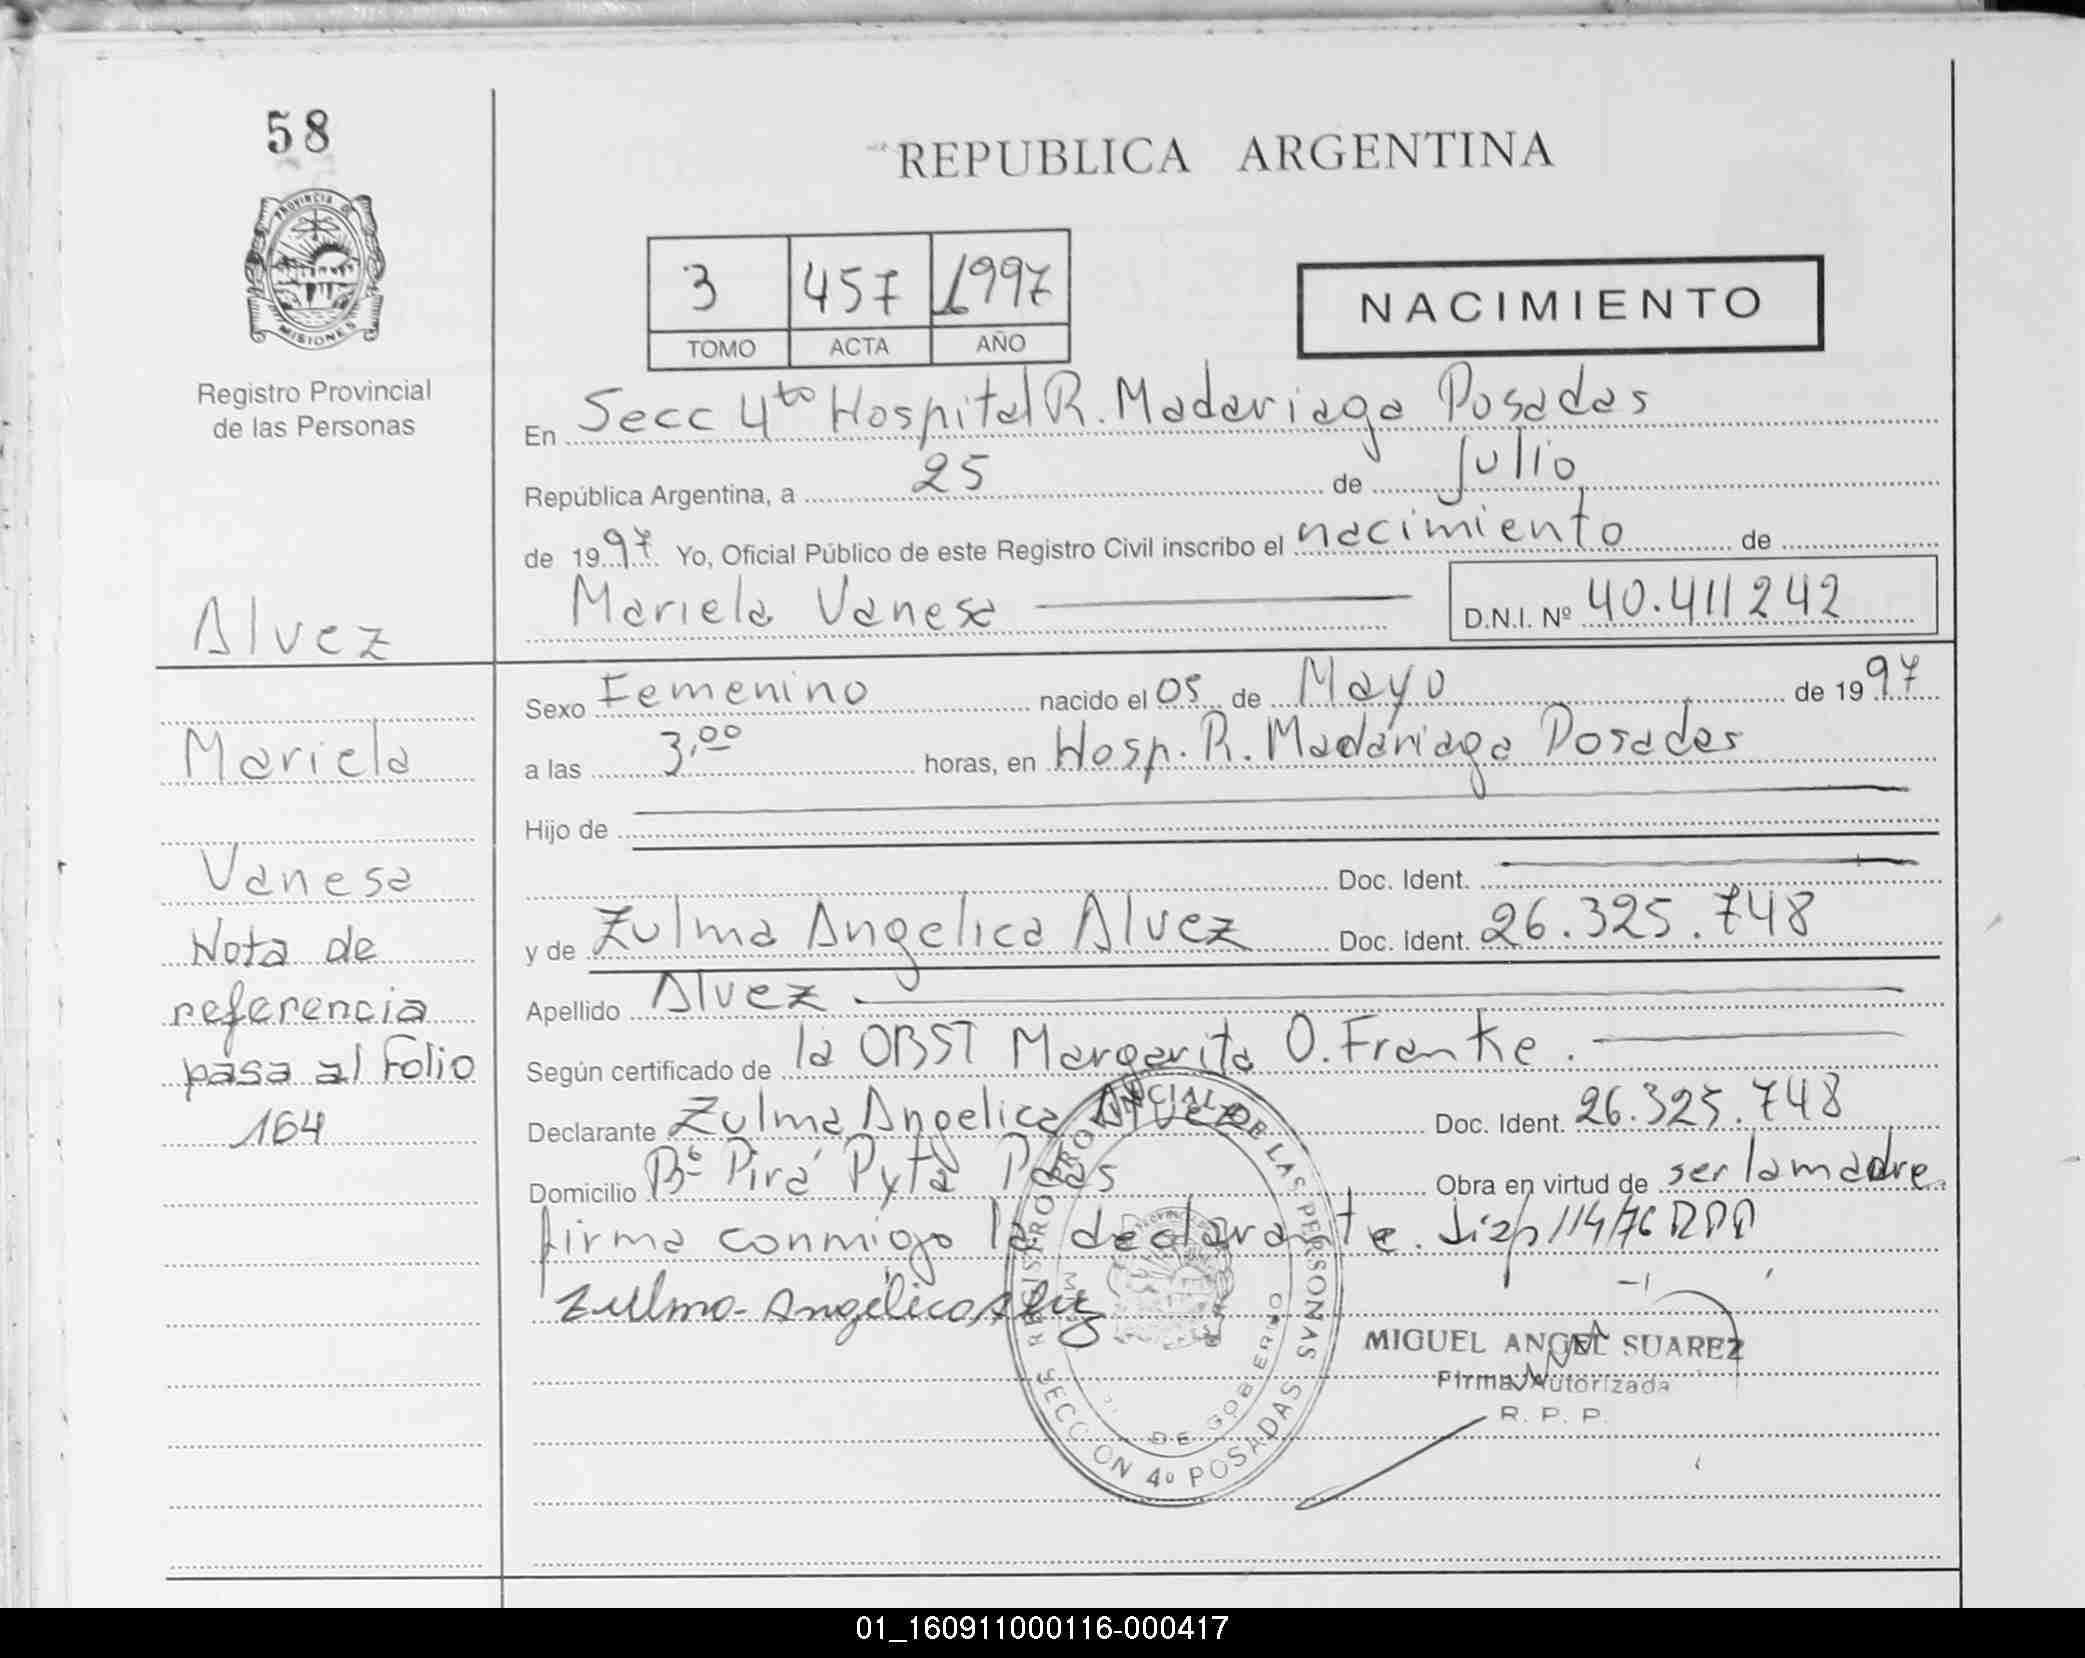 58
REPUBLICA ARGENTINA
PROVINCIA DE MISIONES
3 457 1997
TOMO ACTA AÑO
NACIMIENTO
Registro Provincial
de las Personas
En Secc 4to Hospital R. Madariaga Posadas
República Argentina, a 25 de Julio
de 1997 Yo, Oficial Público de este Registro Civil inscribo el nacimiento de
Mariela Vanesa D.N.I. Nº 40.411242
Alvez
Mariela
Vanesa
Nota de
referencia
pasa al Folio
164
Sexo Femenino nacido el 05 de Mayo de 1997
a las 3,00 horas, en Hosp. R. Madariaga Posadas
Hijo de
Doc. Ident.
y de Zulma Angelica Alvez Doc. Ident. 26.325.748
Apellido Alvez
Según certificado de la OBST Margarita O. Franke.
Declarante Zulma Angelica Alvez Doc. Ident. 26.325.748
Domicilio Bº Pirá Pytá Pdas Obra en virtud de ser la madre
firma conmigo la declarante. Disp 114/76 RPP
Zulma Angelica Alvez
REGISTRO PROVINCIAL DE LAS PERSONAS
SECCION 4º POSADAS
DE GOBIERNO
MIGUEL ANGEL SUAREZ
Firma Autorizada
R. P. P.
01_160911000116-000417